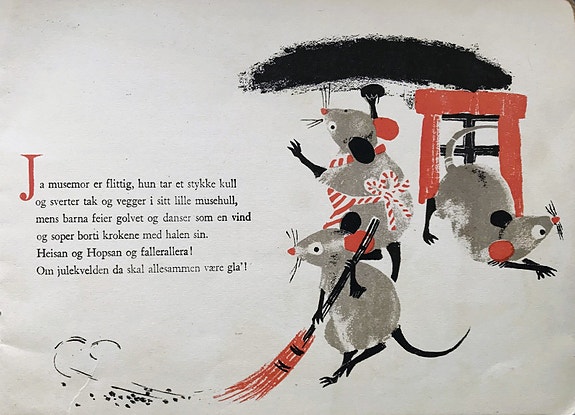 Ja musemor er flittig, hun tar et stykke kull
og sverter tak og vegger i sitt lille musehull,
mens barna feier golvet og danser som en vind
og soper borti krokene med halen sin.
Heisan og Hopsan og fallerallera!
Om julekvelden da skal allesammen være gla'!